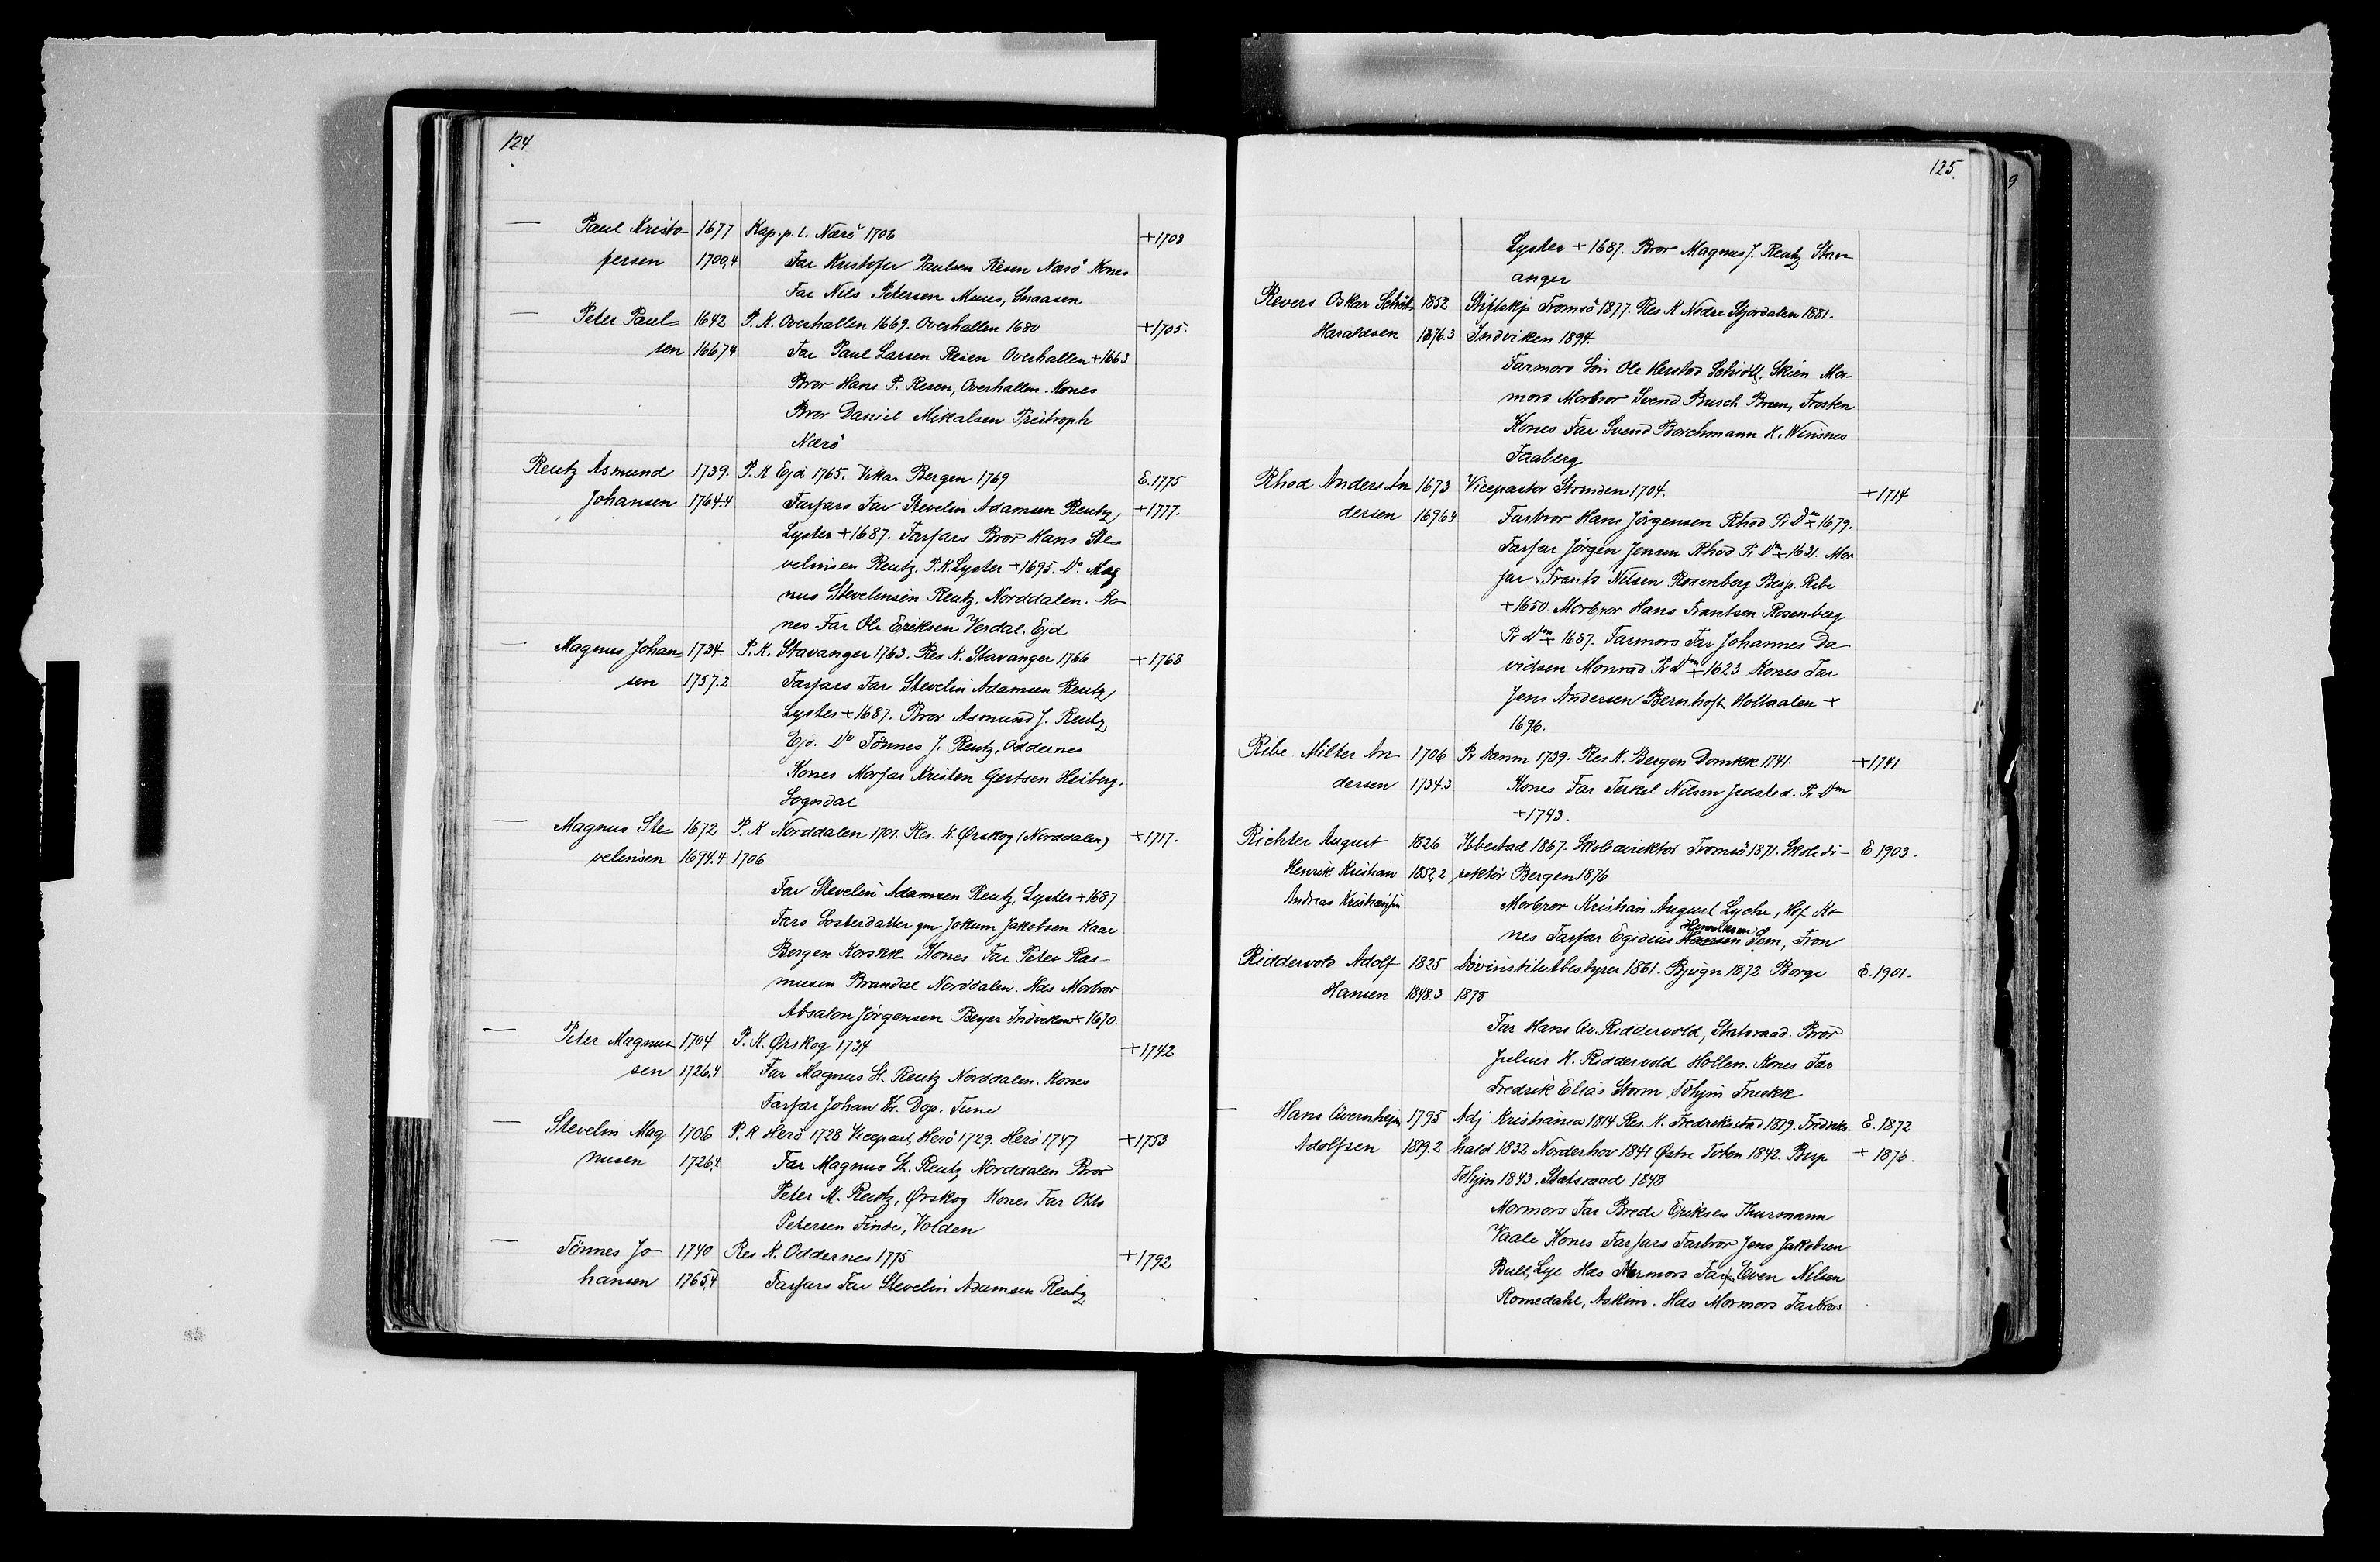 124
— Paul Kristo- 1677 Kap. p. l. Nærö 1706 +1708
fersen 1700,4 Far Kristofer Paulsen Resen Nærö Kones
Far Nils Petersen Muus, Snaasen
— Peter Paul- 1642 P. K. Overhallen 1669. Overhallen 1680 +1705.
sen 1667,4 Far Paul Larsen Resen Overhallen +1663
Bror Hans P. Resen, Overhallen. Kones
Bror Daniel Mikalsen Preitroph
Nærö
Reutz Asmund 1739. P. K Ejd 1765. Vikar Bergen 1769 E. 1775
Johansen 1764.4 Farfars Far Stevelin Adamsen Reutz, +1777.
Lyster +1687. Farfars Bror Hans Ste-
velinsen Reutz. P.K. Lyster +1695. Do Mag
nus Stevelinsen Reutz, Norddalen. Ko-
nes Far Ole Eriksen Verdal. Ejd
— Magnus Johan- 1734. P. K. Stavanger 1763. Res K. Stavanger 1766 +1768
sen 1757.2 Farfars Far Stevelin Adamsen Reutz,
Lyster +1687. Bror Asmund J. Reutz,
Ejd. Do Tönnes J. Reutz, Oddernes
Kones Morfar Kristen Gertsen Heiberg.
Sogndal
— Magnus Ste- 1672 P. K Norddalen 1701. Res. K Ørskog (Norddalen) +1717.
velinsen 1694.4 1706
Far Stevelin Adamsen Reutz, Lyster +1687
Fars Sösterdatter gm Jokum Jakobsen Kaar
Bergen Korskk. Kones Far Peter Ras-
musen Brandal Norddalen. Hds Morbror
Absalon Jörgensen Beyer Indviken +1670.
— Peter Magnus- 1704 P. K. Ørskog 1734 +1742
sen 1726,4 Far Magnus St. Reutz Norddalen. Kones
Farfar Johan Kr. Dop. Tune
— Stevelin Mag 1706 P. K Herö 1728 Vicepast, Herö 1729. Herö 1747 +1753
nusen 1726,4 Far Magnus St. Reutz Norddalen Bror
Peter M. Reutz, Ørskog Kones Far Otto
Petersen Finde, Volden
— Tönnes Jo- 1740 Res K. Oddernes 1775 +1792
hansen 1765,4 Farfars Far Stevelin Adamsen Reutz
125.
Lyster +1687. Bror Magnus J. Reutz Stav-
anger
Revers Oskar Schött 1852 Stiftskp Tromsö 1877. Res K Nedre Stjordalen 1881.
Haraldsen 1876.3 Indviken 1894.
Farmors Sön Ole Herstad Schiött, Skien Mor-
mors Morbror Svend Busch Brun, Frosten
Kones Far Svend Borchmann H. Wisnes
Faaberg
Rhod Anders An 1673 Vicepastor Strinden 1704. +1714
dersen 1696.4 Farbror Hans Jörgensen Rhod Pr Dm +1679.
Farfar Jörgen Jensen Rhod Pr Dm +1631. Mor
far Frants Nilsen Rosenberg Bisp. Ribe
+1650. Morbror Hans Frantsen Rosenberg
Pr Dm +1687. Farmors Far Johannes Da
vidsen Monrad Pr Dm +1623 Kones Far
Jens Andersen Bernhoft Holtaalen +
1696.
Ribe Milter An- 1706 Pr Danm 1739. Res K. Bergen Domkk 1741. +1741
dersen 1734.3 Kones Far Terkel Nilsen Jedsted. Pr Dm
+1743.
Richter August 1826 Ibbestad 1867. Skoledirektör Tromsö 1871. Skoledi- E 1903.
Henrik Kristian 1852,2 rektör Bergen 1876
Andreas Kristiansen Morbror Kristian August Lyche, Hof Ko-
Henriksen
nes Farfar Egidius Hansen Sem, Fron
Riddervold Adolf 1825 Dövinstitutbestyrer 1861. Bjugn 1872 Borge E. 1901.
Hansen 1848.3 1878
Far Hans Av. Riddervold, Statsraad. Bror
Julius H. Riddervold Hollen. Kones Far
Fredrik Elias Storm Trhjm Fruekk
— Hans Avernhejm 1795 Adj Kristiania 1814 Res. K. Fredriksstad 1819. Fredriks- E. 1872
Adolfsen 1819.2 hald 1832 Norderhov 1841 Østre Toten 1842. Bisp +1876.
Trhjm 1843. Statsraad 1848
Mormors Far Brede Eriksen Thurmann
Vaale Kones Farfars Farbror Jens Jakobsen
Bull, Lye Hds Mormors Farfar Even Nilsen
Romedahl, Askim. Hds Mormors Farbrors
9